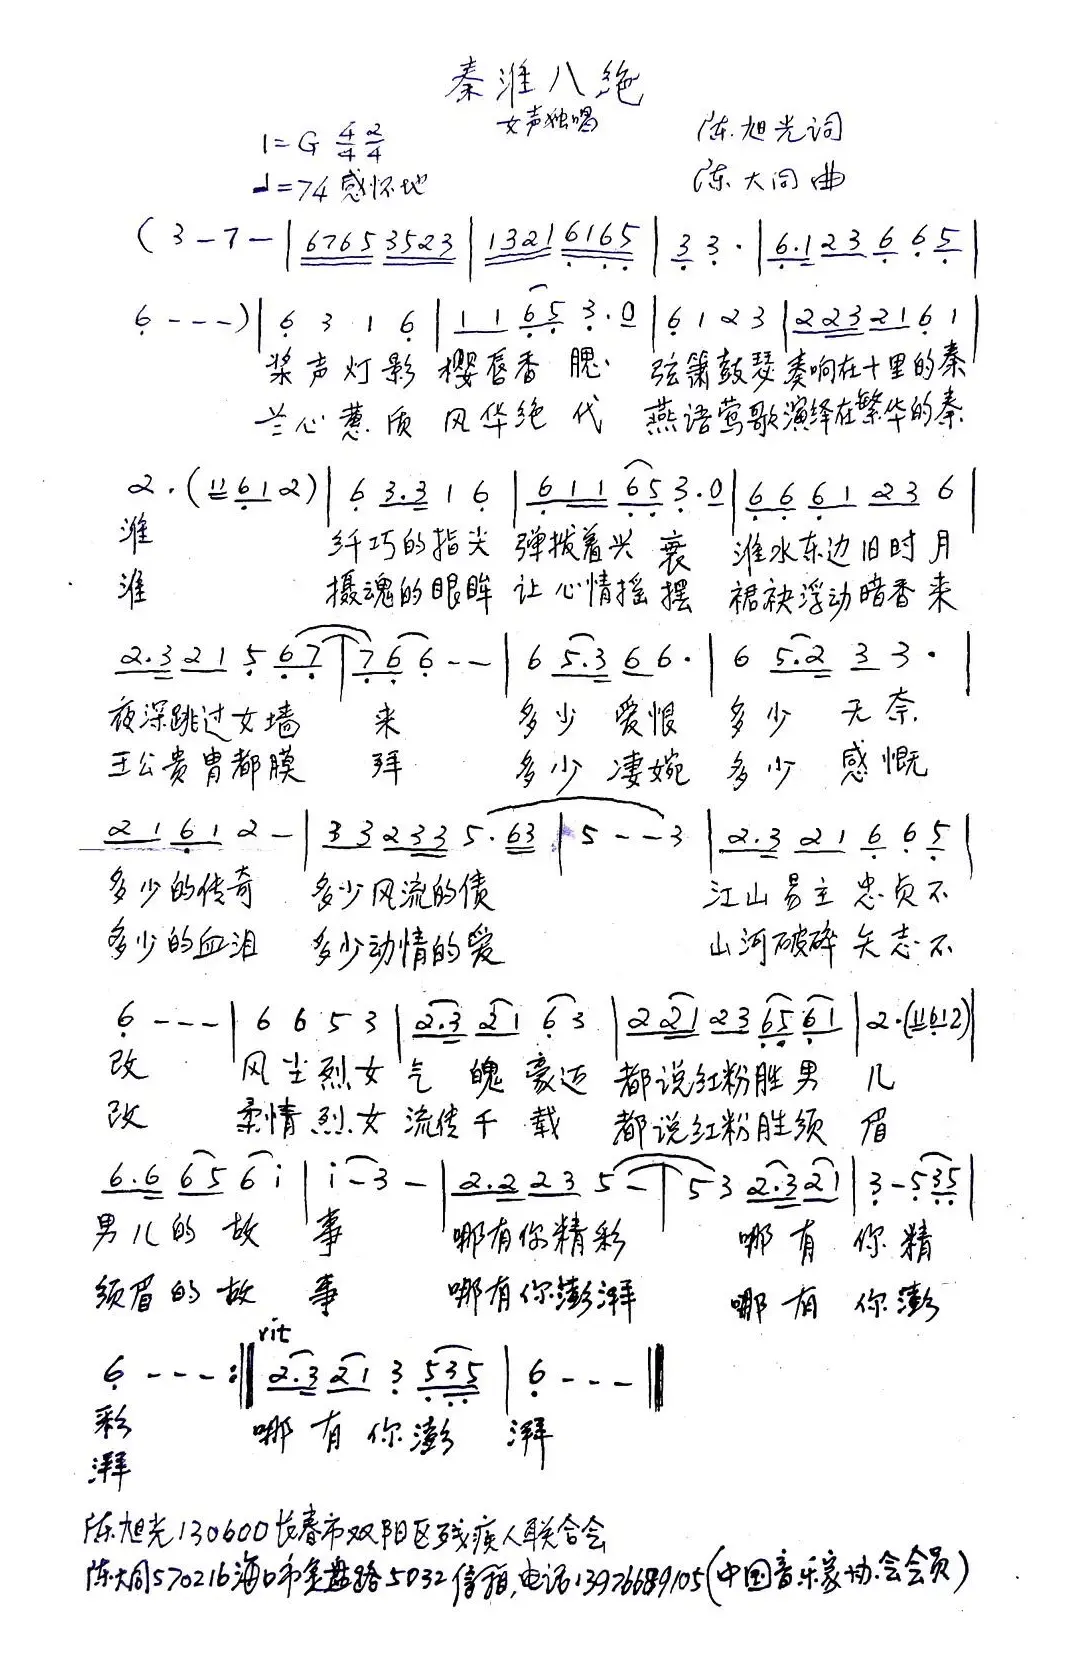 秦淮八绝
女声独唱
1=G 4/4 2/4
陈旭光词
♩=74 感怀地
陈大同曲
(3 - 7 - | 6765 3523 | 1321 6165 | 3 3· | 6·1 23 6 6 5 |
6 - - -) | 6 3 1 6 | 1 1 65 3·0 | 6 1 2 3 | 223 21 6 1 |
桨声灯影 樱唇香腮 弦箫鼓瑟 奏响在十里的秦
兰心蕙质 风华绝代 燕语莺歌 演绎在繁华的秦
2·(11 61 2) | 6 3·3 1 6 | 6 11 65 3·0 | 66 61 23 6 |
淮 纤巧的指尖 弹拨着兴衰 淮水东边旧时月
淮 摄魂的眼眸 让心情摇摆 裙袂浮动暗香来
2·3 21 5 67 | 76 6 - - | 6 5·3 6 6· | 6 5·2 3 3· |
夜深跳过女墙 来 多少爱恨 多少无奈
王公贵胄都膜 拜 多少凄婉 多少感慨
21 61 2 - | 33 233 5·63 | 5 - - 3 | 2·3 21 6 6 5 |
多少的传奇 多少风流的债 江山易主忠贞不
多少的血泪 多少动情的爱 山河破碎矢志不
6 - - - | 6 6 5 3 | 2·3 21 6 3 | 221 23 65 61 | 2·(11612) |
改 风尘烈女 气魄豪迈 都说红粉胜男 儿
改 柔情烈女 流传千载 都说红粉胜须 眉
6·6 65 6 i | i - 3 - | 2·2 23 5 - | 5 3 2·3 21 | 3 - 535 |
男儿的故 事 哪有你精彩 哪有 你精
须眉的故 事 哪有你澎湃 哪有 你澎
rit
6 - - - :‖ 2·3 21 3 535 | 6 - - - ‖
彩 哪有你澎 湃
湃
陈旭光130600长春市双阳区残疾人联合会
陈大同570216海口市金盘路5032信箱,电话13976689105(中国音乐家协会会员)